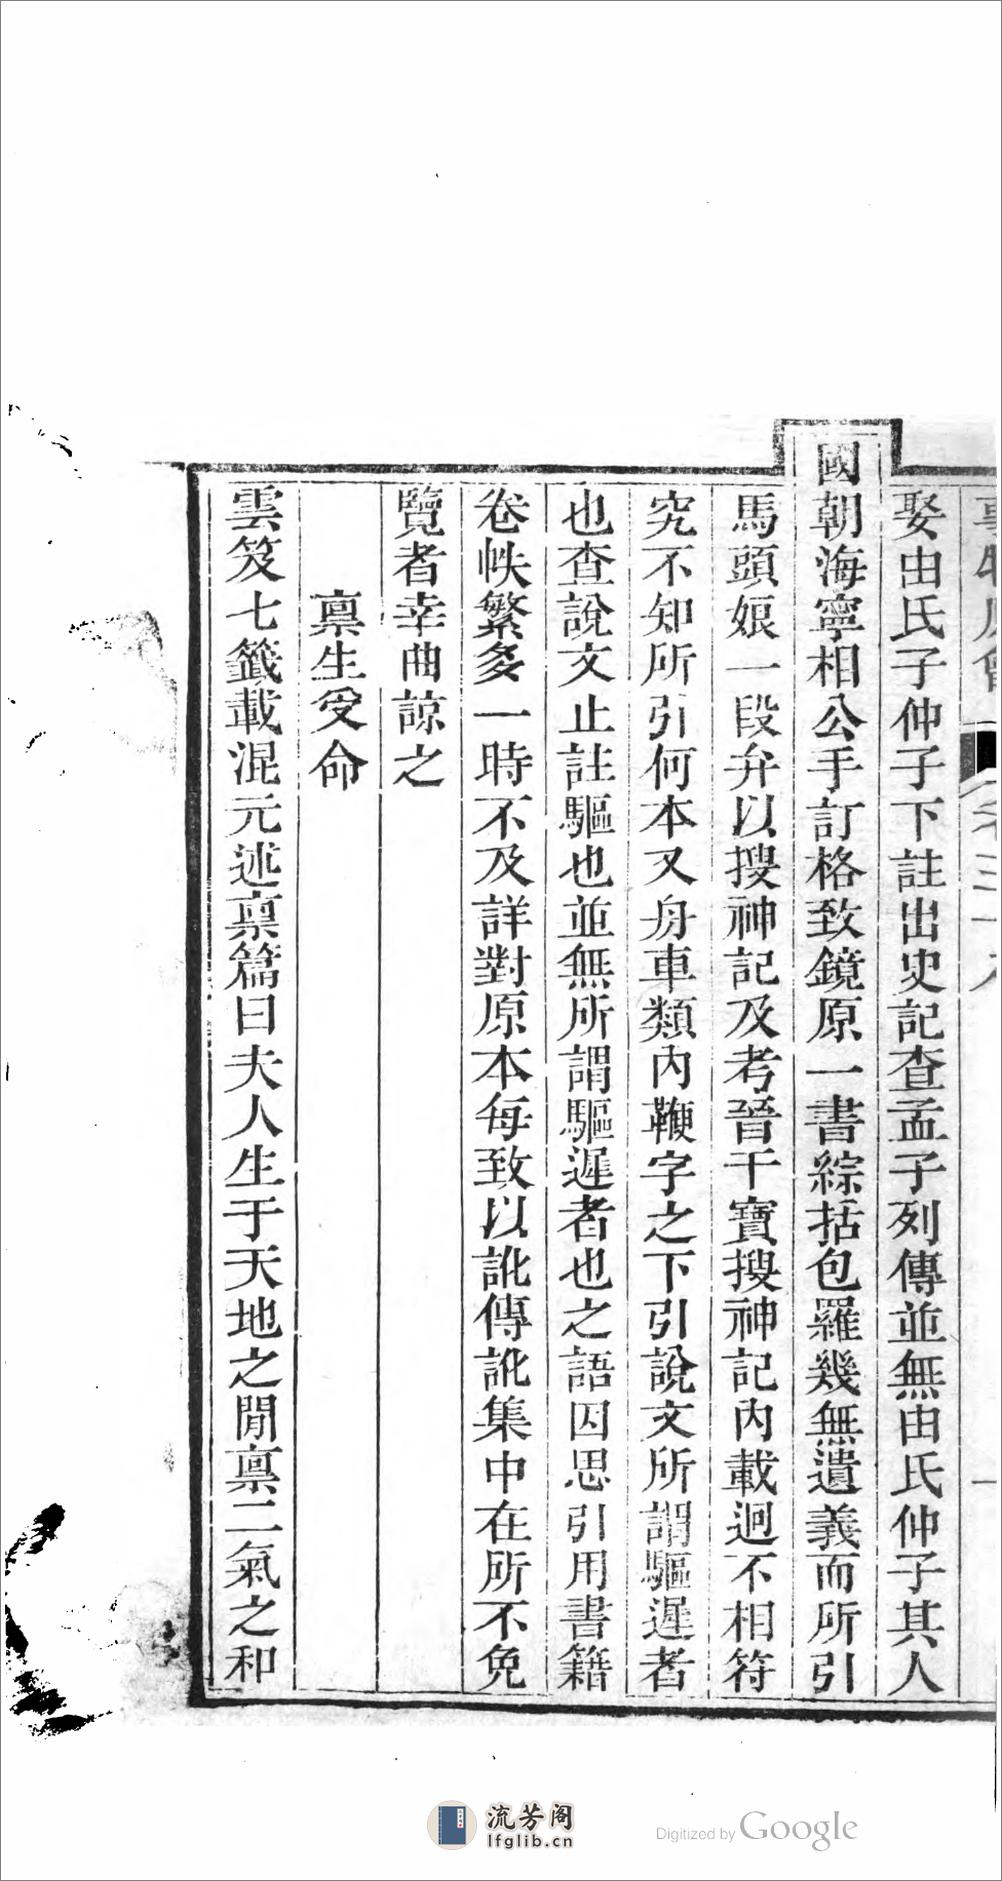 娶由氏子仲子下註出史記查孟子列傳並無由氏仲子其人
國朝海寧相公手訂格致鏡原一書綜括包羅幾無遺義而所引
馬頭娘一段弁以搜神記及考晉干寶搜神記內載迥不相符
究不知所引何本又舟車類內鞭字之下引說文所謂驅遲者
也查說文止註驅也並無所謂驅遲者也之語因思引用書籍
卷帙繁多一時不及詳對原本每致以訛傳訛集中在所不免
覽者幸曲諒之
稟生受命
雲笈七籤載混元述稟篇曰夫人生于天地之閒稟二氣之和
流芳阁
lfglib.cn
Digitized by Google